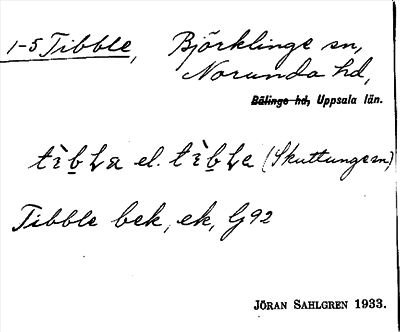 1-5 Tibble, Björklinge sn,
Norunda hd,
Bälinge hd, Uppsala län.
el. (Skuttunge sn.)
Tibble bek, ek, G92
JÖRAN SAHLGREN 1933.